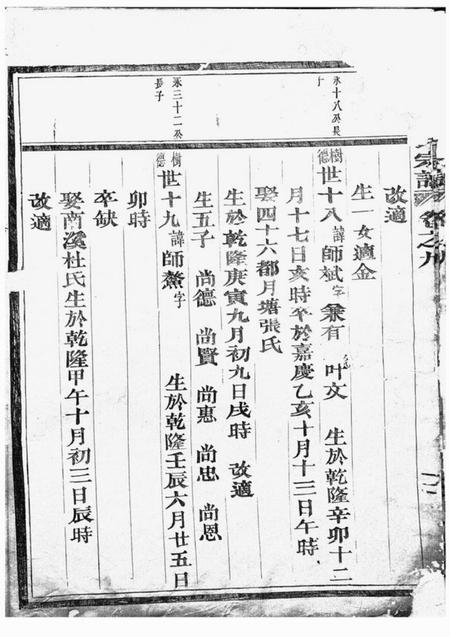 宗譜 卷之九
改適
生一女適金
永十八癸長
子
樹德世十八諱師斌字兼有 叶文 生於乾隆辛卯十二
月十七日亥時卒於嘉慶乙亥十月十三日午時
娶四十六都月塘張氏
生於乾隆庚寅九月初九日戌時 改適
生五子 尚德 尚賢 尚惠 尚忠 尚恩
永三十二癸
長子
樹德世十九諱師鰲字 生於乾隆壬辰六月廿五日
卯時
卒缺
娶南溪杜氏生於乾隆甲午十月初三日辰時
改適